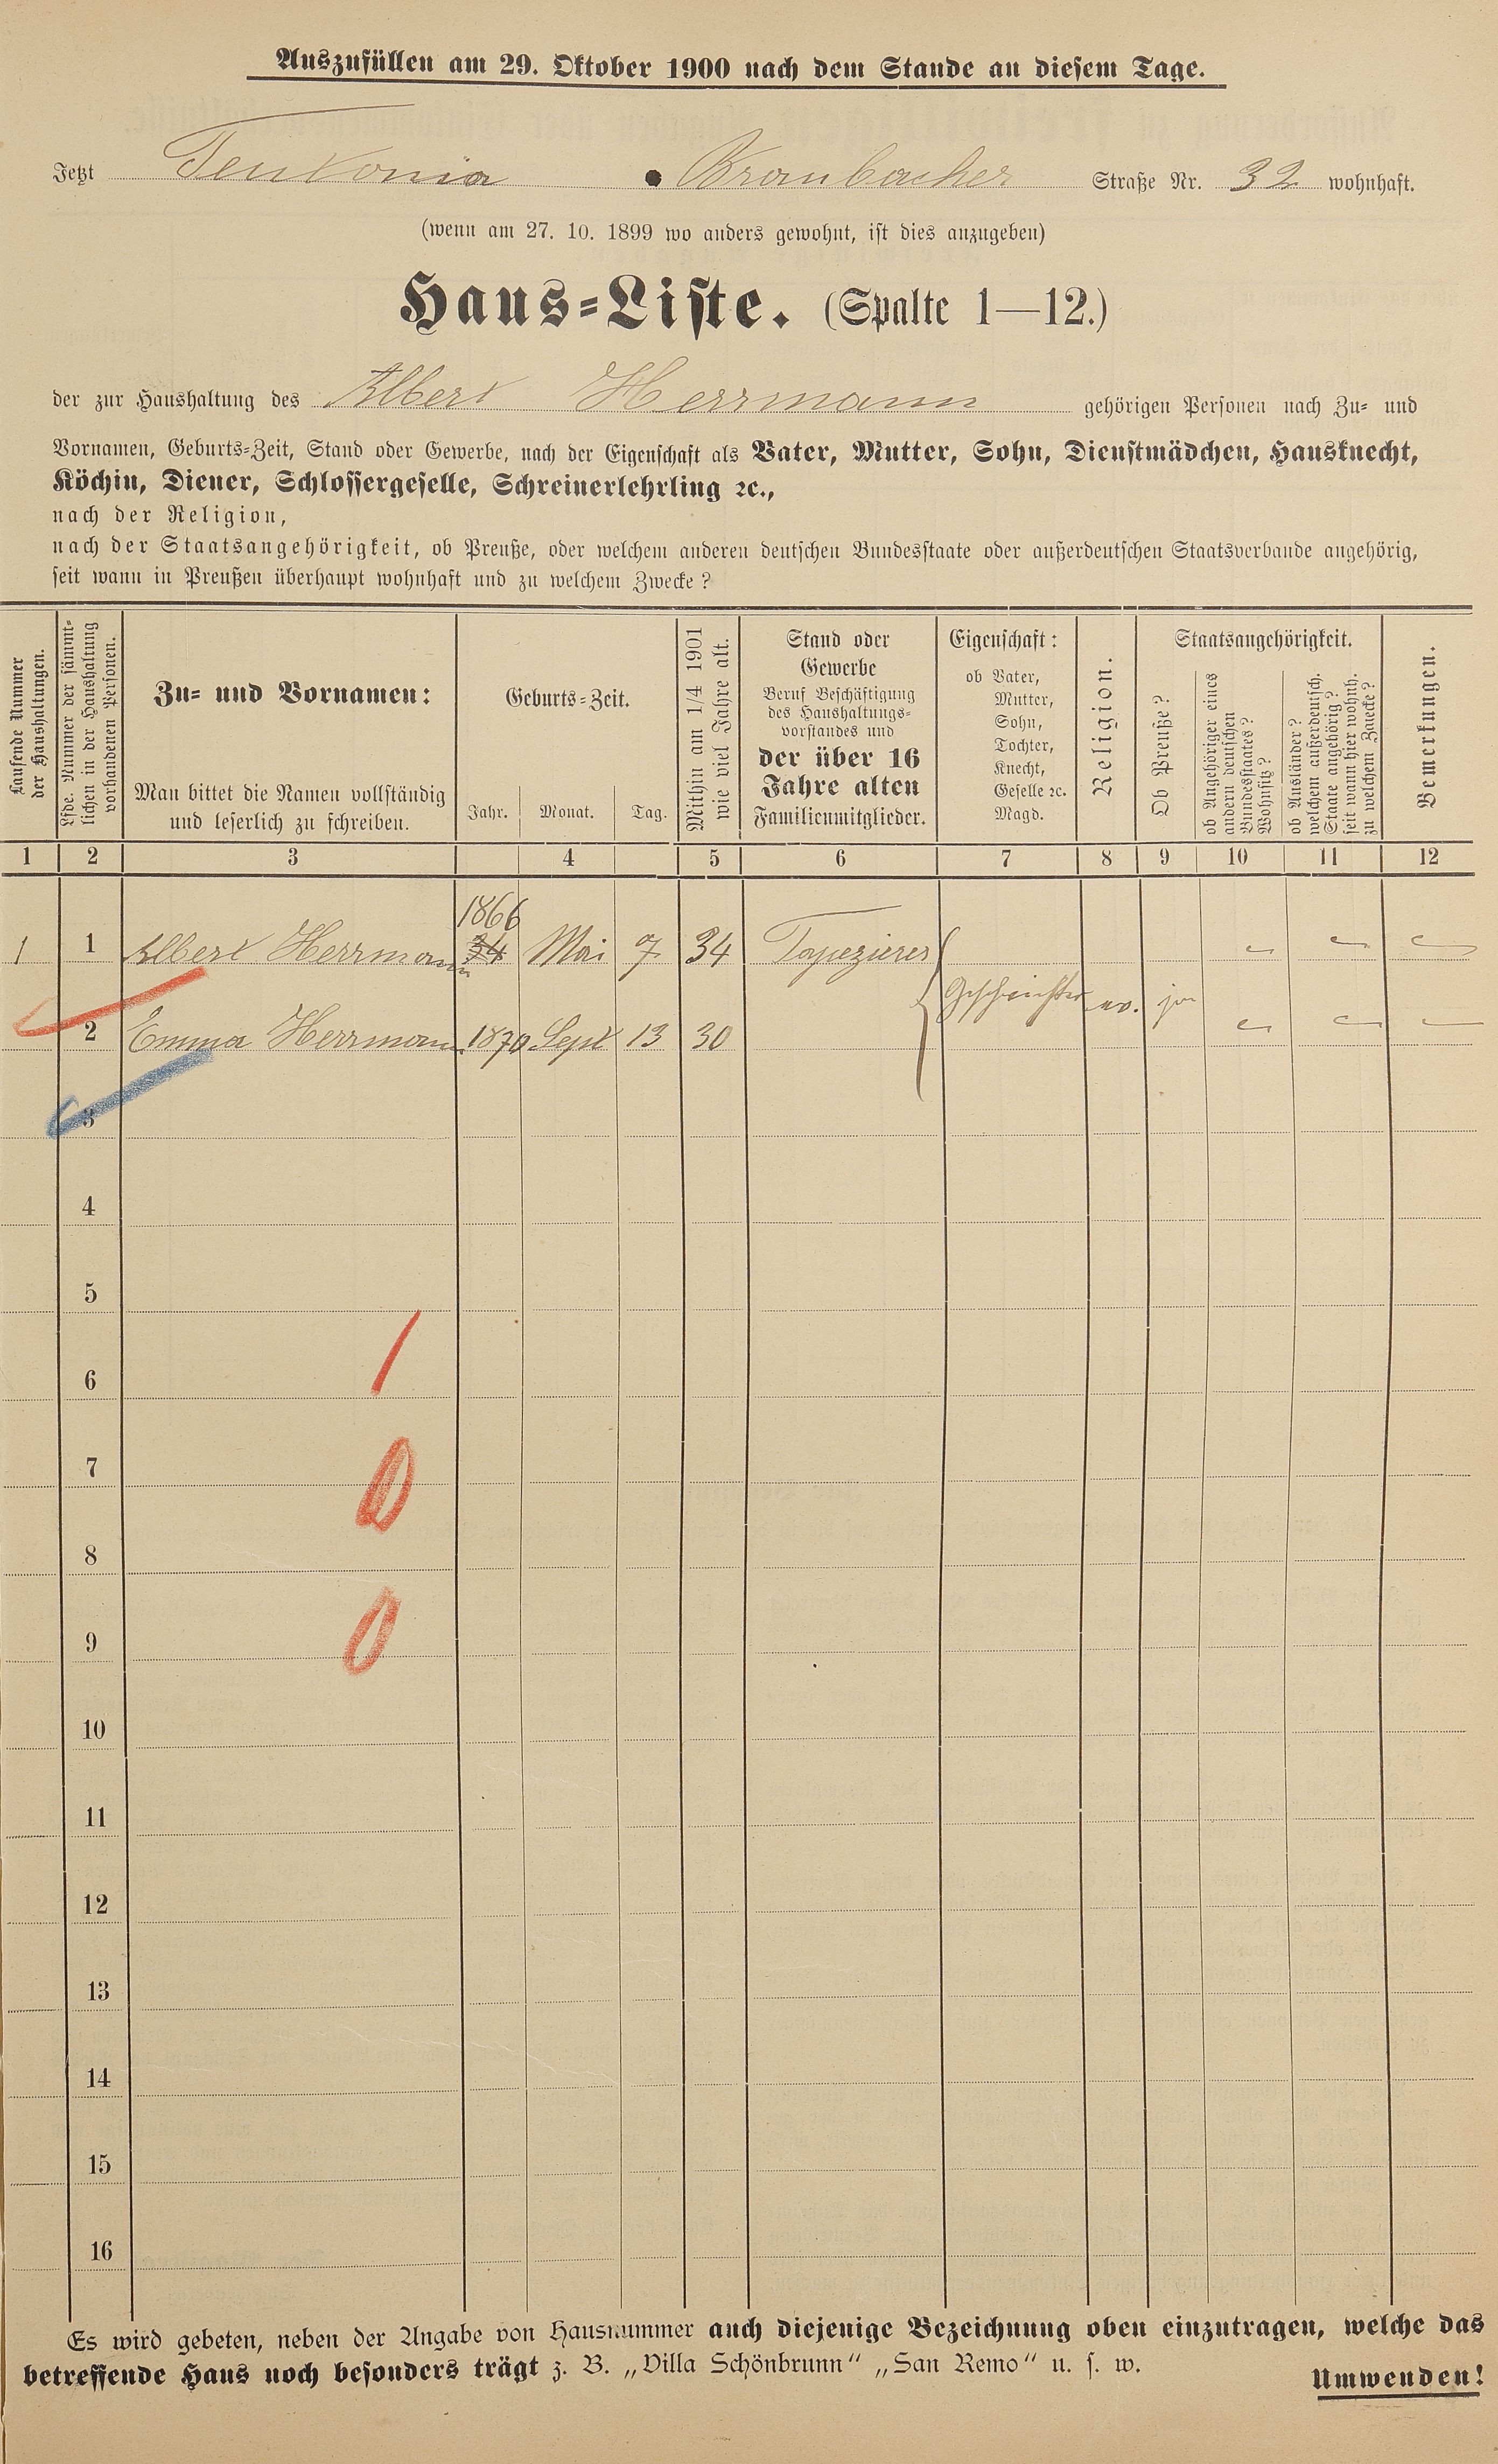 Auszufüllen am 29. Oktober 1900 nach dem Stande an diesem Tage.
Jetzt Teutonia Braubacher Straße Nr. 32 wohnhaft.
(wenn am 27. 10. 1899 wo anders gewohnt, ist dies anzugeben)
Haus=Liste. (Spalte 1—12.)
der zur Haushaltung des Albert Herrmann gehörigen Personen nach Zu= und
Vornamen, Geburts=Zeit, Stand oder Gewerbe, nach der Eigenschaft als Vater, Mutter, Sohn, Dienstmädchen, Hausknecht,
Köchin, Diener, Schlossergeselle, Schreinerlehrling ꝛc.,
nach der Religion,
nach der Staatsangehörigkeit, ob Preuße, oder welchem anderen deutschen Bundesstaate oder außerdeutschen Staatsverbande angehörig,
seit wann in Preußen überhaupt wohnhaft und zu welchem Zwecke?
Laufende Nummer
der Haushaltungen.
Lfde. Nummer der sämmt=
lichen in der Haushaltung
vorhandenen Personen.
Zu= und Vornamen:
Man bittet die Namen vollständig
und leserlich zu schreiben.
Geburts=Zeit.
Jahr. Monat. Tag.
Mithin am 1/4 1901
wie viel Jahre alt.
Stand oder
Gewerbe
Beruf Beschäftigung
des Haushaltungs=
vorstandes und
der über 16
Jahre alten
Familienmitglieder.
Eigenschaft:
ob Vater,
Mutter,
Sohn,
Tochter,
Knecht,
Geselle ꝛc.
Magd.
Religion.
Staatsangehörigkeit.
Ob Preuße?
ob Angehöriger eines
andern deutschen
Bundesstaates?
Wohnsitz?
ob Ausländer?
welchem außerdeutsch.
Staate angehörig?
seit wann hier wohnh.
zu welchem Zwecke?
Bemerkungen.
1 2 3 4 5 6 7 8 9 10 11 12
1866
1 1 Albert Herrmann 34 Mai 7 34 Tapezierer
Geschwister ev. ja
2 Emma Herrmann 1870 Sept 13 30
3
4
5
1
6
0
7
8
0
9
10
11
12
13
14
15
16
Es wird gebeten, neben der Angabe von Hausnummer auch diejenige Bezeichnung oben einzutragen, welche das
betreffende Haus noch besonders trägt z. B. „Villa Schönbrunn" „San Remo" u. s. w.
Umwenden!